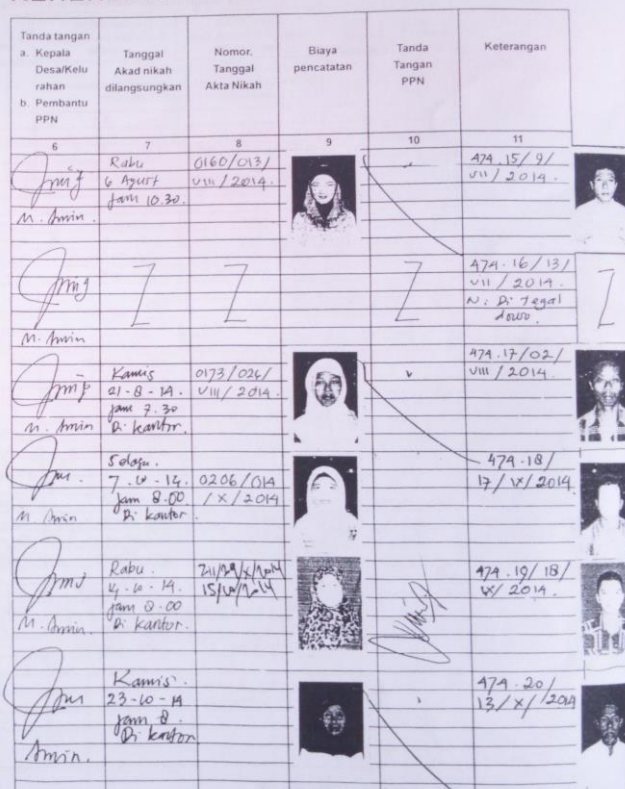 Tanda tangan
a. Kepala
Desa/Kelu
rahan
b. Pembantu
PPN
Tanggal
Akad nikah
dilangsungkan
Nomor.
Tanggal
Akta Nikah
Biaya
pencatatan
Tanda
Tangan
PPN
Keterangan
6
7
8
9
10
11
M. Amin.
Rabu
6 Agust
jam 10.30.
0160/013/
VIII/2014.
474.15/9/
VII/2014.
M. Amin
474.16/13/
VII/2014.
N: Di Tegal
dowo.
M. Amin
Kamis
21-8-14.
jam 7.30
Di kantor.
0173/026/
VIII/2014.
474.17/02/
VIII/2014.
M. Amin
Selasa.
jam 8.00
Di kantor.
0206/014
/X/2014
474.18/
2014
M. Amin.
Rabu.
jam 8.00
Di kantor.
474.19/18/
2014.
Amin.
Kamis.
23-10-14
jam 8.
Di kantor
474.20/
13/X/2014